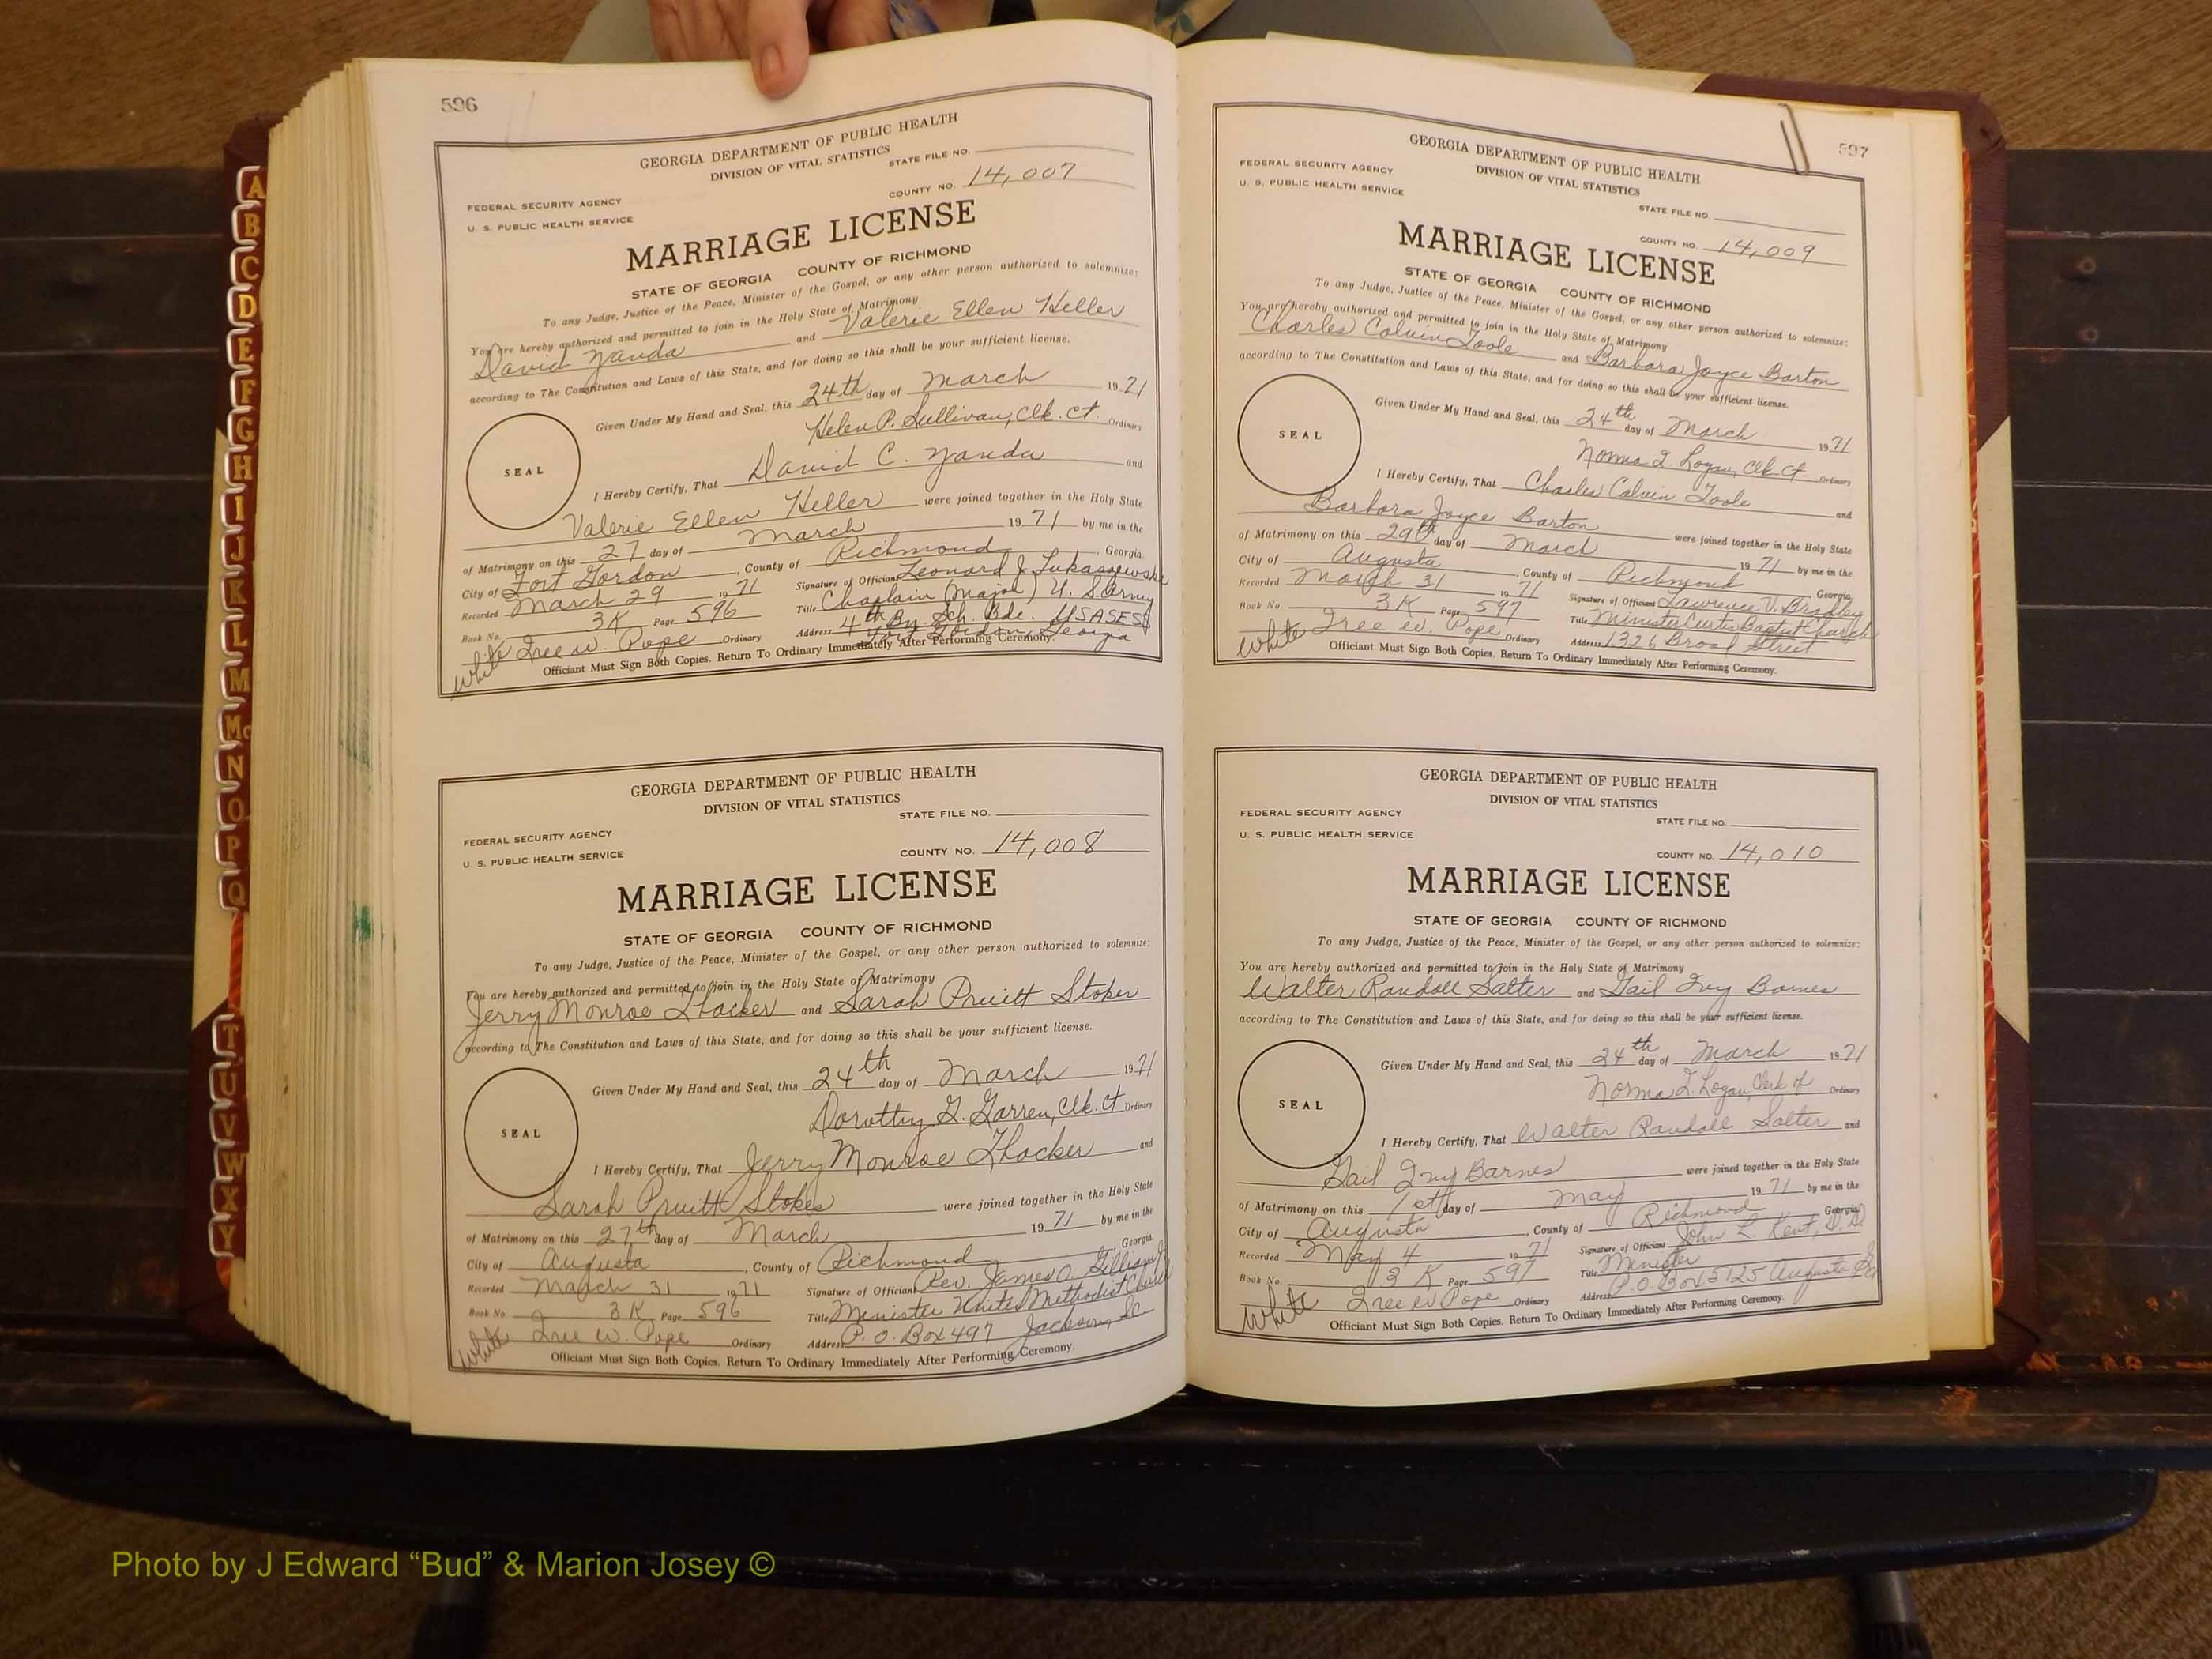 596
GEORGIA DEPARTMENT OF PUBLIC HEALTH
DIVISION OF VITAL STATISTICS
STATE FILE NO.
COUNTY NO. 14,007
FEDERAL SECURITY AGENCY
U. S. PUBLIC HEALTH SERVICE
MARRIAGE LICENSE
STATE OF GEORGIA COUNTY OF RICHMOND
To any Judge, Justice of the Peace, Minister of the Gospel, or any other person authorized to solemnize:
You are hereby authorized and permitted to join in the Holy State of Matrimony
David Yanda and Valerie Ellen Heller
according to The Constitution and Laws of this State, and for doing so this shall be your sufficient license.
Given Under My Hand and Seal, this 24th day of March 1971
Helen P. Sullivan, Clk. Ct. Ordinary
SEAL
I Hereby Certify, That David C. Yanda and
Valerie Ellen Heller were joined together in the Holy State
of Matrimony on this 27 day of March 1971 by me in the
City of Fort Gordon, County of Richmond, Georgia.
Recorded March 29 1971 Signature of Official Leonard J. Lukaszewski
Book No. 3K Page 596 Title Chaplain (Major) U. S. Army
White Tree W. Pope Ordinary Address 4th Bn. Sch. Bde. USASESS
Fort Gordon, Georgia
Officiant Must Sign Both Copies. Return To Ordinary Immediately After Performing Ceremony.
GEORGIA DEPARTMENT OF PUBLIC HEALTH
DIVISION OF VITAL STATISTICS
STATE FILE NO.
FEDERAL SECURITY AGENCY
U. S. PUBLIC HEALTH SERVICE
COUNTY NO. 14,008
MARRIAGE LICENSE
STATE OF GEORGIA COUNTY OF RICHMOND
To any Judge, Justice of the Peace, Minister of the Gospel, or any other person authorized to solemnize:
You are hereby authorized and permitted to join in the Holy State of Matrimony
Jerry Monroe Thacker and Sarah Pruitt Stokes
according to The Constitution and Laws of this State, and for doing so this shall be your sufficient license.
Given Under My Hand and Seal, this 24th day of March 1971
Dorothy G. Garren, Clk. Ct. Ordinary
SEAL
I Hereby Certify, That Jerry Monroe Thacker and
Sarah Pruitt Stokes were joined together in the Holy State
of Matrimony on this 27th day of March 1971 by me in the
City of Augusta, County of Richmond Georgia.
Recorded March 31 1971 Signature of Official Rev. James O. Gilliam
Book No. 3K Page 596 Title Minister United Methodist Church
White Tree W. Pope Ordinary Address P. O. Box 497 Jackson, Sc
Officiant Must Sign Both Copies. Return To Ordinary Immediately After Performing Ceremony.
597
GEORGIA DEPARTMENT OF PUBLIC HEALTH
DIVISION OF VITAL STATISTICS
FEDERAL SECURITY AGENCY
U. S. PUBLIC HEALTH SERVICE
STATE FILE NO.
COUNTY NO. 14,009
MARRIAGE LICENSE
STATE OF GEORGIA COUNTY OF RICHMOND
To any Judge, Justice of the Peace, Minister of the Gospel, or any other person authorized to solemnize:
You are hereby authorized and permitted to join in the Holy State of Matrimony
Charles Calvin Toole and Barbara Joyce Barton
according to The Constitution and Laws of this State, and for doing so this shall be your sufficient license.
Given Under My Hand and Seal, this 24th day of March 1971
Norma I. Logan, Clk. Ct. Ordinary
SEAL
I Hereby Certify, That Charles Calvin Toole and
Barbara Joyce Barton were joined together in the Holy State
of Matrimony on this 29th day of March 1971 by me in the
City of Augusta, County of Richmond Georgia.
Recorded March 31 1971 Signature of Official Lawrence V. Bradley
Book No. 3K Page 597 Title Minister Curtis Baptist Church
White Tree W. Pope Ordinary Address 1326 Broad Street
Officiant Must Sign Both Copies. Return To Ordinary Immediately After Performing Ceremony.
GEORGIA DEPARTMENT OF PUBLIC HEALTH
DIVISION OF VITAL STATISTICS
FEDERAL SECURITY AGENCY
STATE FILE NO.
U. S. PUBLIC HEALTH SERVICE
COUNTY NO. 14,010
MARRIAGE LICENSE
STATE OF GEORGIA COUNTY OF RICHMOND
To any Judge, Justice of the Peace, Minister of the Gospel, or any other person authorized to solemnize:
You are hereby authorized and permitted to join in the Holy State of Matrimony
Walter Randall Salter and Gail Ivy Barnes
according to The Constitution and Laws of this State, and for doing so this shall be your sufficient license.
Given Under My Hand and Seal, this 24th day of March 1971
Norma I. Logan, Clerk of Ordinary
SEAL
I Hereby Certify, That Walter Randall Salter and
Gail Ivy Barnes were joined together in the Holy State
of Matrimony on this 1st day of May 1971 by me in the
City of Augusta, County of Richmond Georgia.
Recorded May 4 1971 Signature of Official John L. Kent, D.D.
Book No. 3K Page 597 Title Minister
White Tree W. Pope Ordinary Address P.O. Box 5125 Augusta Ga
Officiant Must Sign Both Copies. Return To Ordinary Immediately After Performing Ceremony.
A
B
C
D
E
F
G
H
I
J
K
L
M
Mc
N
O
P
Q
T
U
V
W
X
Y
Photo by J Edward “Bud” & Marion Josey ©